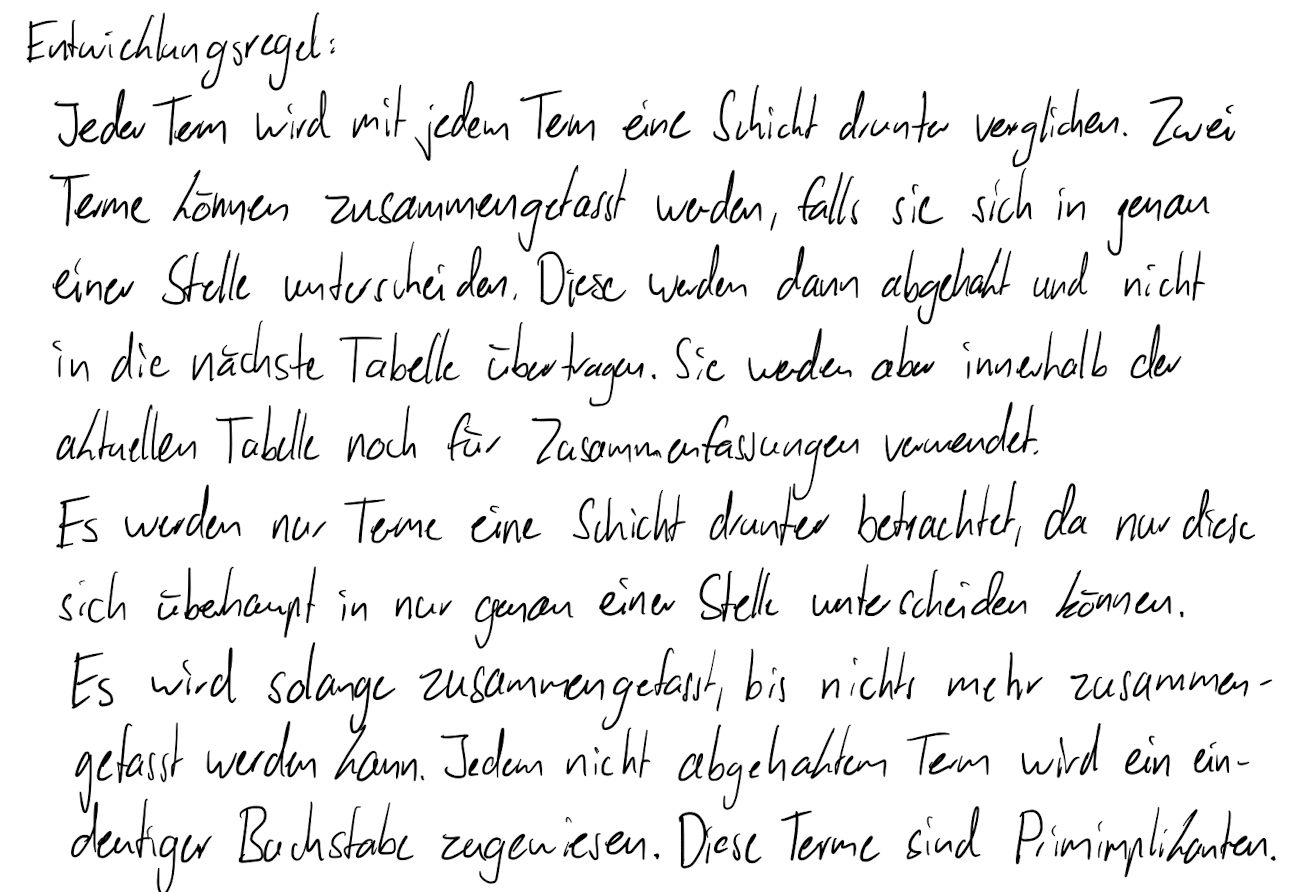 Entwicklungsregel:
Jeder Term wird mit jedem Term eine Schicht drunter verglichen. Zwei
Terme können zusammengefasst werden, falls sie sich in genau
einer Stelle unterscheiden. Diese werden dann abgehakt und nicht
in die nächste Tabelle übertragen. Sie werden aber innerhalb der
aktuellen Tabelle noch für Zusammenfassungen verwendet.
Es werden nur Terme eine Schicht drunter betrachtet, da nur diese
sich überhaupt in nur genau einer Stelle unterscheiden können.
Es wird solange zusammengefasst, bis nichts mehr zusammen-
gefasst werden kann. Jedem nicht abgehakten Term wird ein ein-
deutiger Buchstabe zugewiesen. Diese Terme sind Primimplikanten.